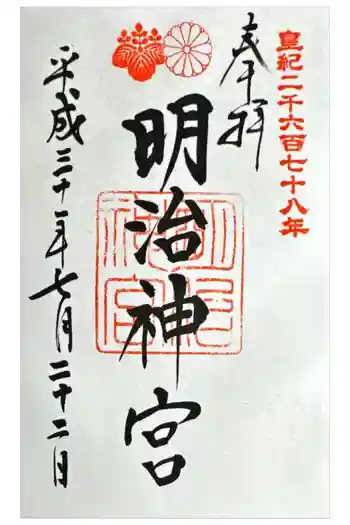 皇紀二千六百七十八年
奉拝
明治神宮
平成三十年七月二十二日